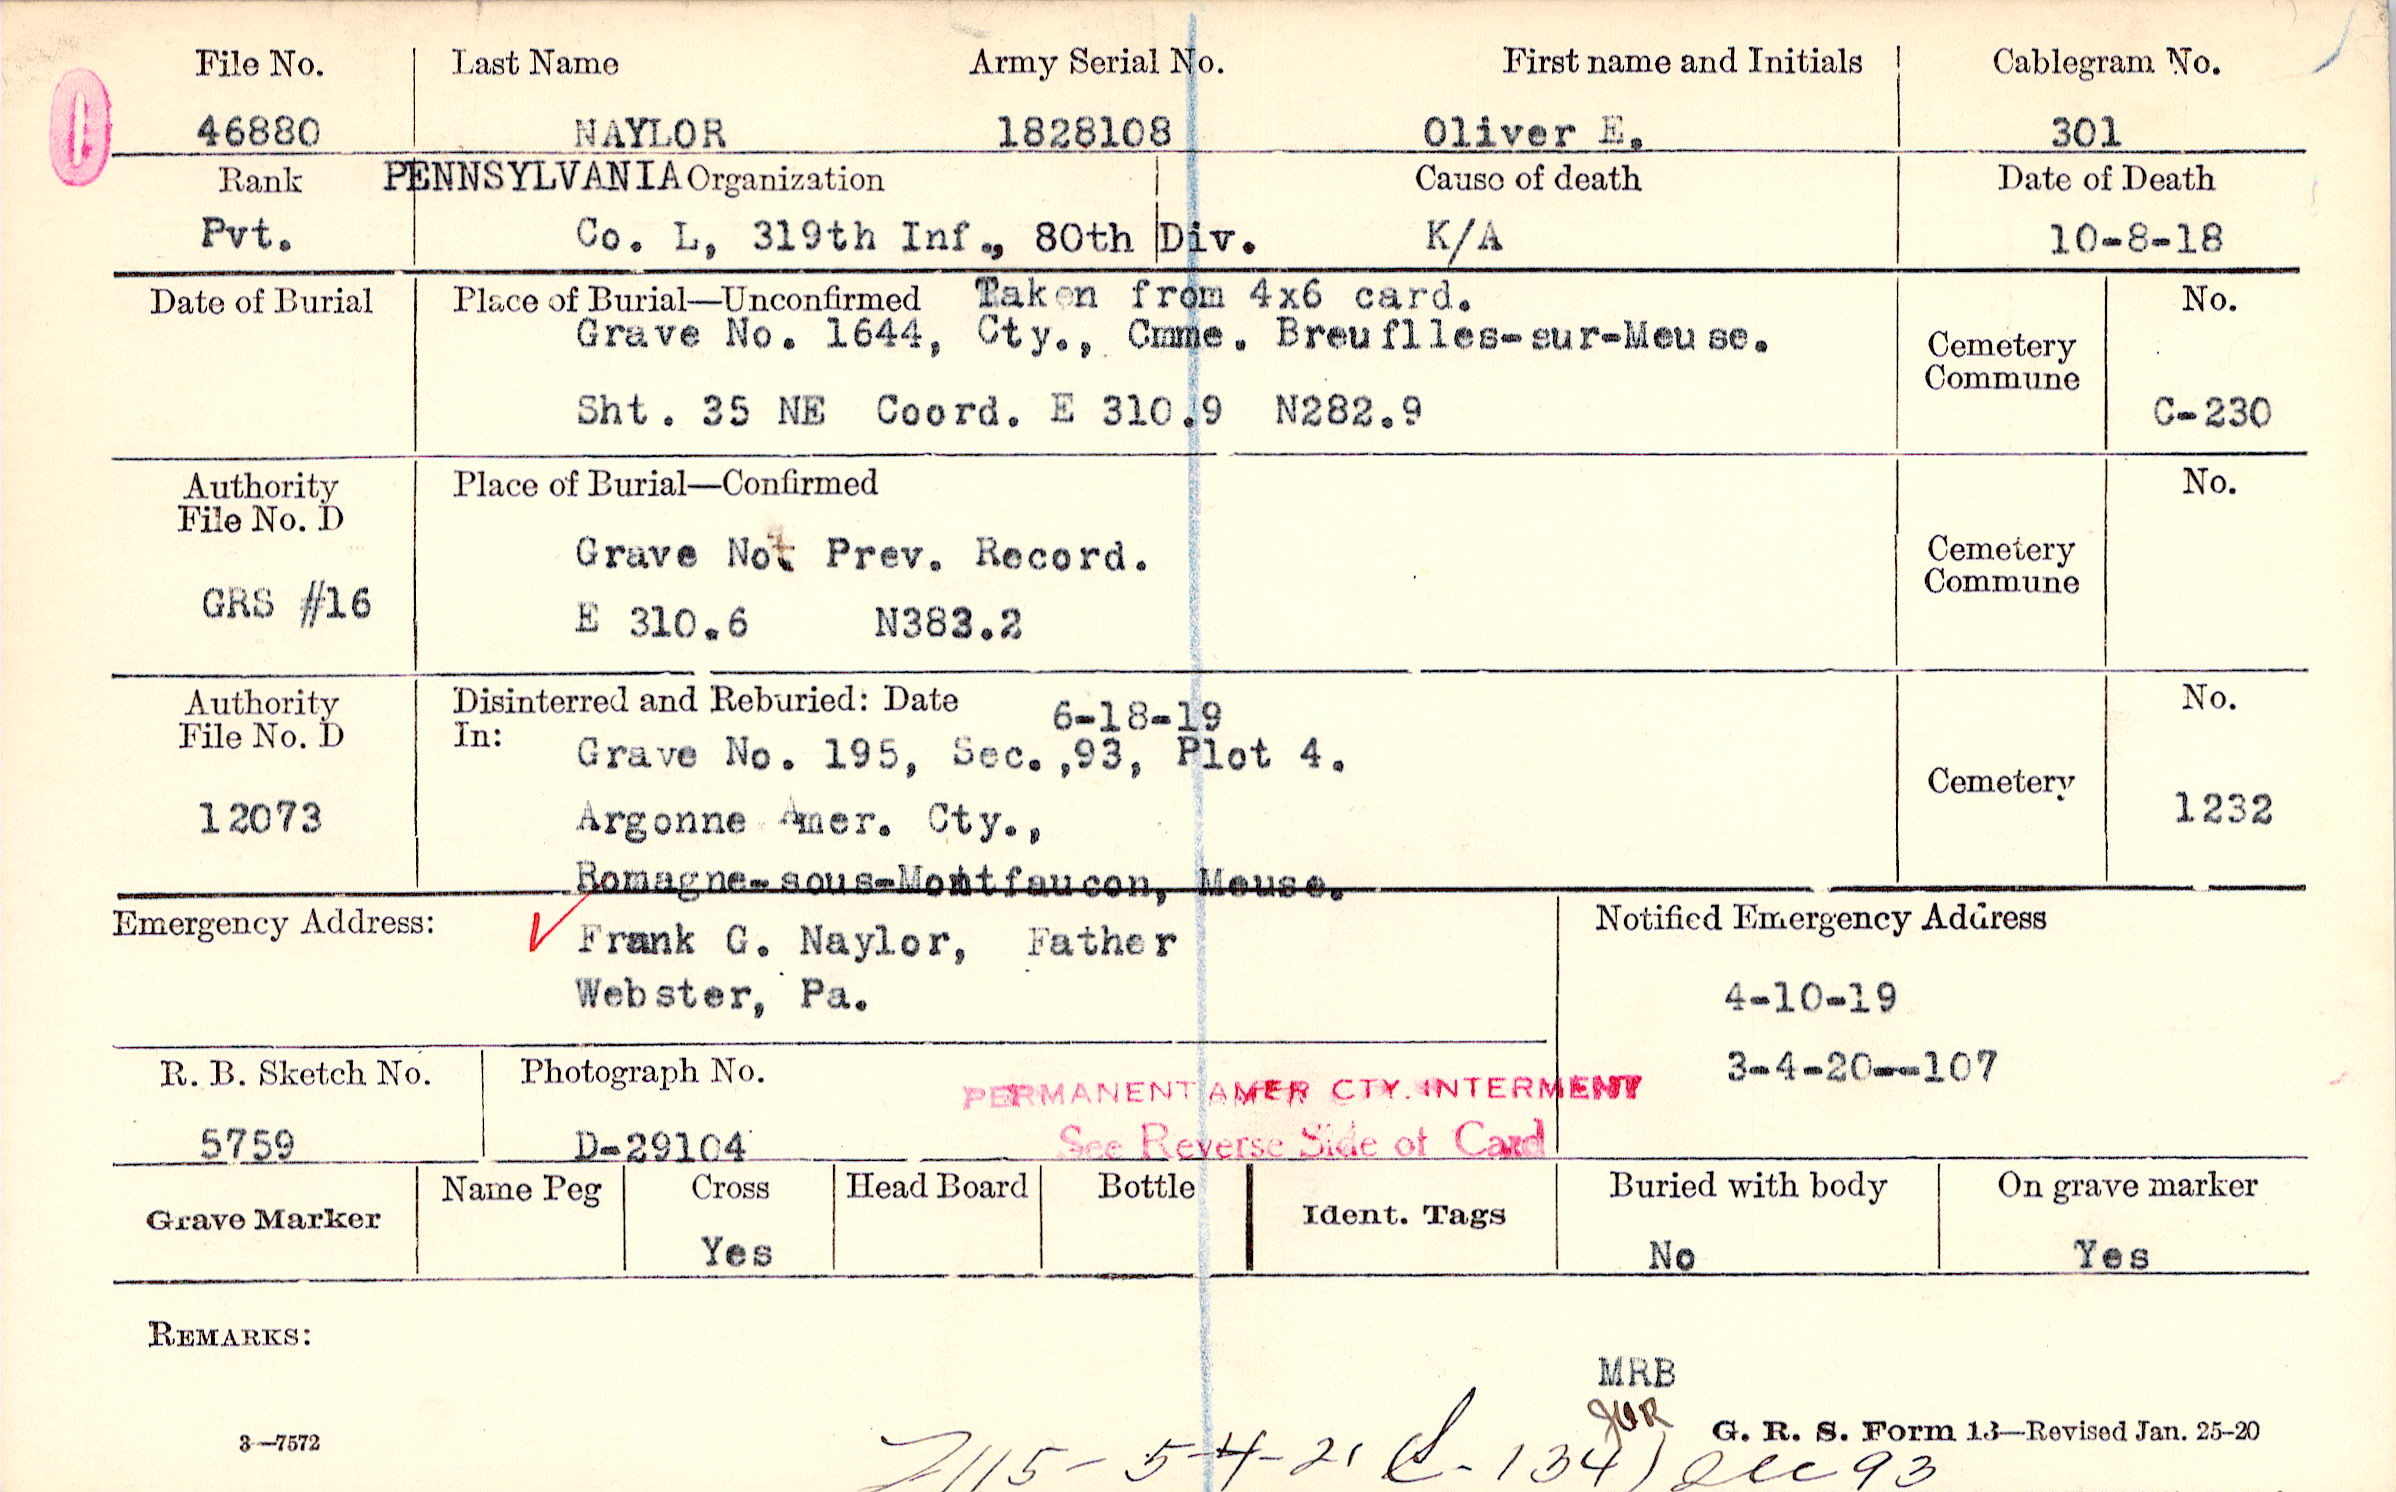 File No. Last Name Army Serial No. First name and Initials Cablegram No.
46880 NAYLOR 1828108 Oliver E. 301
Rank PENNSYLVANIA Organization Cause of death Date of Death
Pvt. Co. L, 319th Inf., 80th Div. K/A 10-8-18
Date of Burial Place of Burial—Unconfirmed Taken from 4x6 card. No.
Grave No. 1644, Cty., Cmme. Breuflles-sur-Meuse.
Cemetery
Commune
Sht. 35 NE Coord. E 310.9 N282.9 C-230
Authority Place of Burial—Confirmed No.
File No. D
Grave Not Prev. Record. Cemetery
Commune
GRS #16 E 310.6 N383.2
Authority Disinterred and Reburied: Date 6-18-19 No.
File No. D In: Grave No. 195, Sec.,93, Plot 4.
Cemetery
12073 Argonne Amer. Cty., 1232
Romagne-sous-Montfaucon, Meuse.
Emergency Address: Frank G. Naylor, Father Notified Emergency Address
Webster, Pa. 4-10-19
R. B. Sketch No. Photograph No. 3-4-20--107
PERMANENT AMER CTY. INTERMENT
5759 D-29104 See Reverse Side of Card
Grave Marker Name Peg Cross Head Board Bottle Ident. Tags Buried with body On grave marker
Yes No Yes
REMARKS:
MRB
JWR
3—7572 G. R. S. Form 13—Revised Jan. 25-20
5-4-21 134)
93